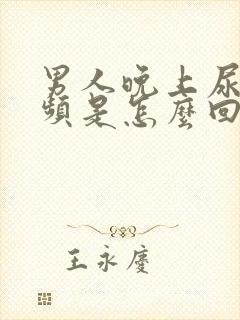 男人晚上尿
頻是怎麼回
王永慶